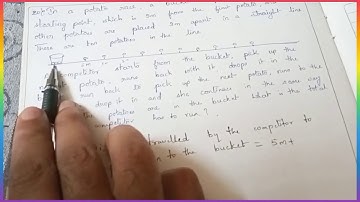 In a potato race, a bucket
starting point, which is 5m from the first potato,
other potatoes are placed 3m apart in a straight line
There are potatoes in the line
competitor starts from the bucket, pick up the
potato, runs back with drops it in the
run back to pick up the next potato, runs to the
drops it in and she continue in the same way
potatoes are in the bucket what is the total
competitor has to run?
travelled by the competitor to
to the bucket = 5m +